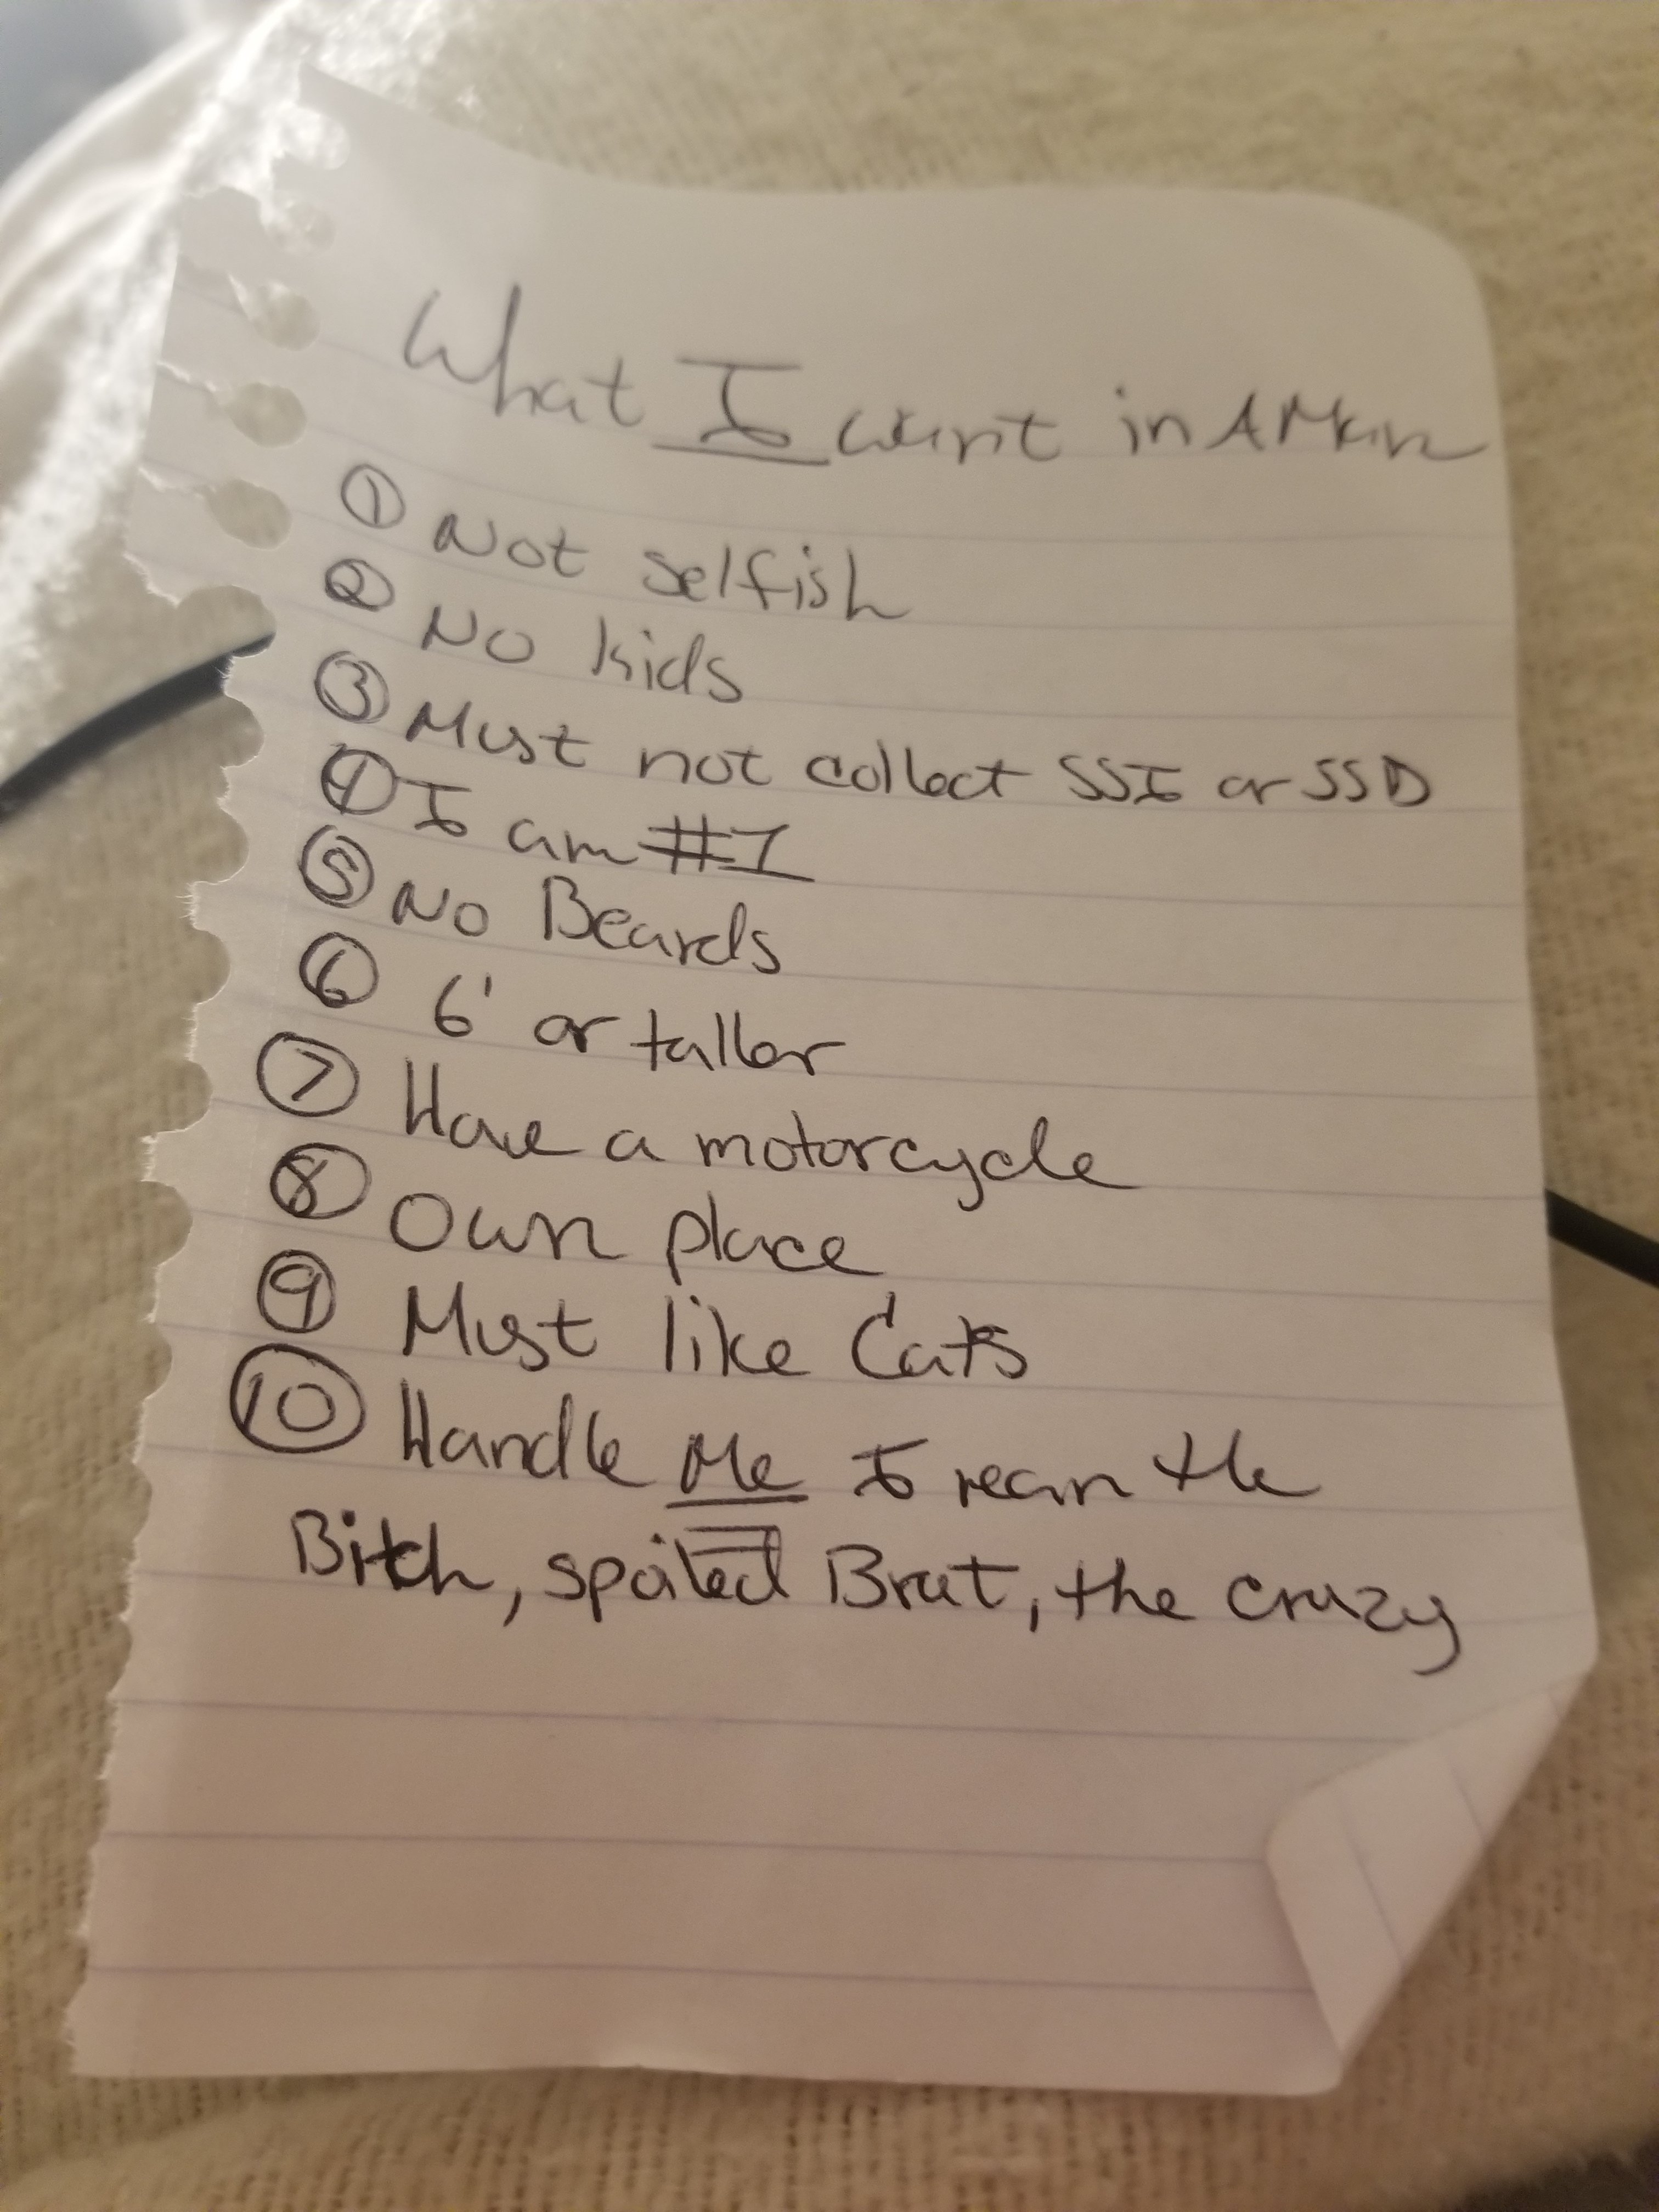 What I want in A Man
① Not selfish
② No kids
③ Must not collect SSI or SSD
④ I am #1
⑤ No Beards
⑥ 6' or taller
⑦ Have a motorcycle
⑧ Own place
⑨ Must like Cats
⑩ Handle Me I mean the
Bitch, spoiled Brat, the crazy